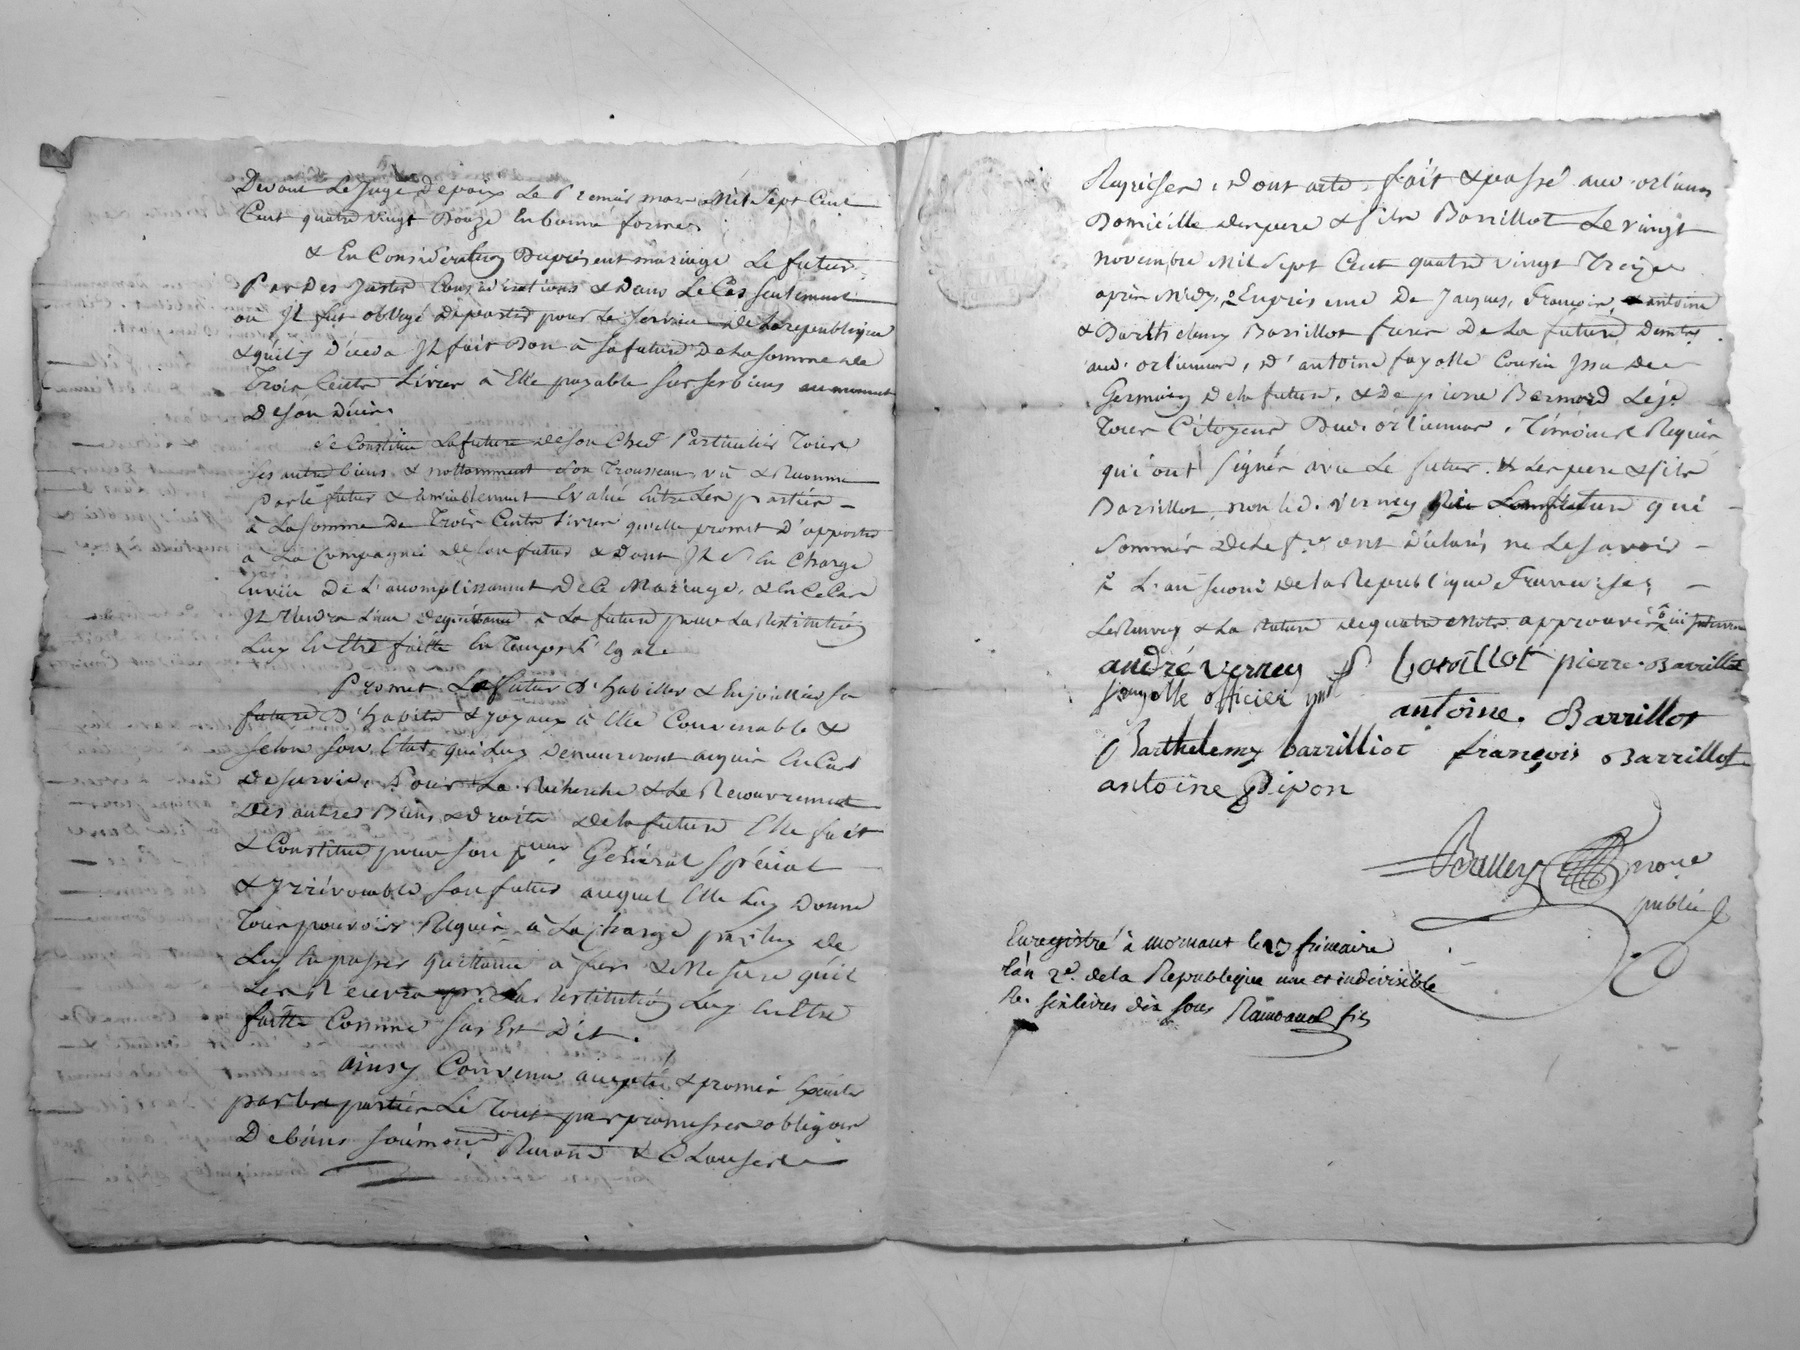 Devant Le Juge de paix Le Premier mars Mil Sept Cent
Cent quatre vingt Douze En bonne forme.
& En Consideration Du présent mariage Le futur
Par Des Justes Considérations & Dans Le Cas seulement
ou Il fut obligé De partir pour Le service De la republique
& qu'il y Déceda Il fait Don à Sa future De la somme de
Trois Cents Livres à Elle payable sur ses biens au moment
De son Décès.
Se Constitue La future de son Chef Particulier Tous
ses autres biens & nottamment son Trousseau, vû & Reconnu
par le futur & amiablement Evalué Entre Les parties
à La somme De Trois Cents Livres qu'elle promet D'apporter
à La Compagnie de son futur & Dont Il S'en Charge
Envüe De L'accomplissement De Ce Mariage, & En Ce Cas
Il Tiendra Lieu De quittance à La future pour La Restitution
Luy En Etre faitte En Temps & Lieu
Promet Le futur D'habiller & Enjoailler sa
future D'habits & Joyaux à Elle Convenable &
selon son Etat qui Luy Demeureront acquis En Cas
De survie. Pour La Recherche & Le Recouvrement
Des autres Biens & Droits de la future Elle fait
& Constitue pour son pcur. Général Spécial
& Irrévocable son futur auquel Elle Luy Donne
Tous pouvoirs Requis à La Charge par Luy de
Luy En passer quittance à fur & Mesure qu'il
Les Recevra La Restitution Luy En Etre
faitte Comme Sus Est Dit.
ainsy Convenu accepté & promis Exécuter
par Les parties Le Tout par promesses obligon
De biens soumons. Renons & Clauses
Requises, Dont acte, fait & passé aud. orlienas
Domicille des pere & fils Barrillot Le vingt
Novembre Mil Sept Cent quatre vingt Treize
après Midy, En présence De Jacques, François, antoine
& Barthelemy Barrillot freres De La future Demts
aud. orlienas, D'antoine fayolle Cousin Issu De
Germain De la future, & De pierre Bernard Léjé
Tous Citoyens Dud. orlienas, Témoins Requis
qui ont Signés avec Le futur. & Les pere & fils
Barrillot, non led. Verney La future qui
Sommés De Le fre. ont Déclarés ne Le savoir
& L'an second De la Republique Françoise,
Le Renvoy & La Rature De quatre Mots approuvés
andré verney P barillot pierre Barrillot
fayolle officier ml
antoine Barrillot
Barthelemy barrilliot françois Barrillot
antoine Pipon
Balley nore
public
Enregistré à mornant le 23 frimaire
l'an 2e. de la Republique une et indivisible
Re. six livres dix sous fils